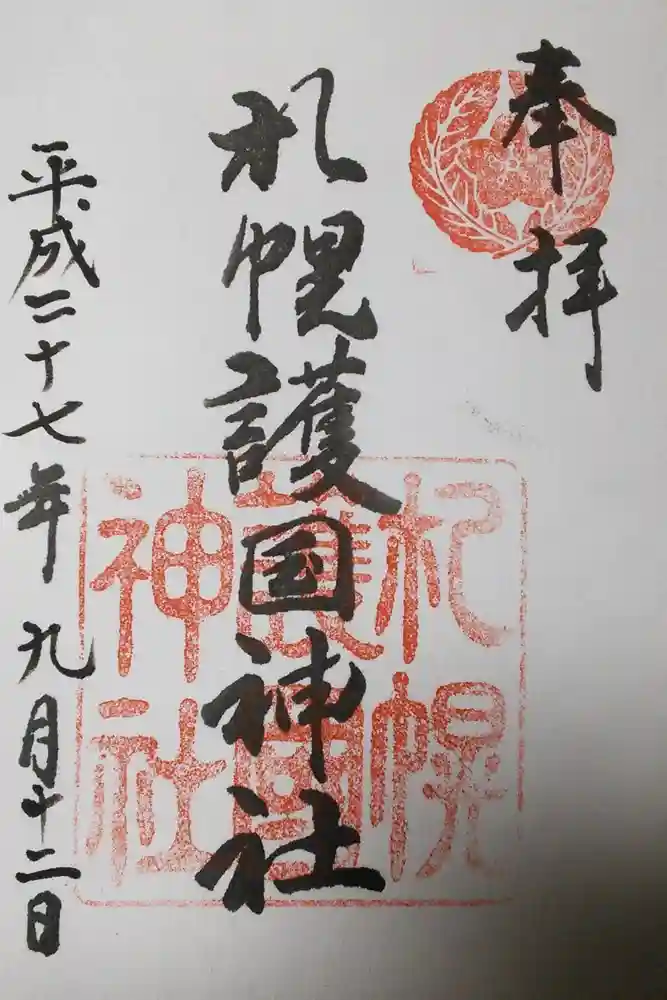 奉拝
札幌護国神社
札幌
護国
神社
平成二十七年九月十二日